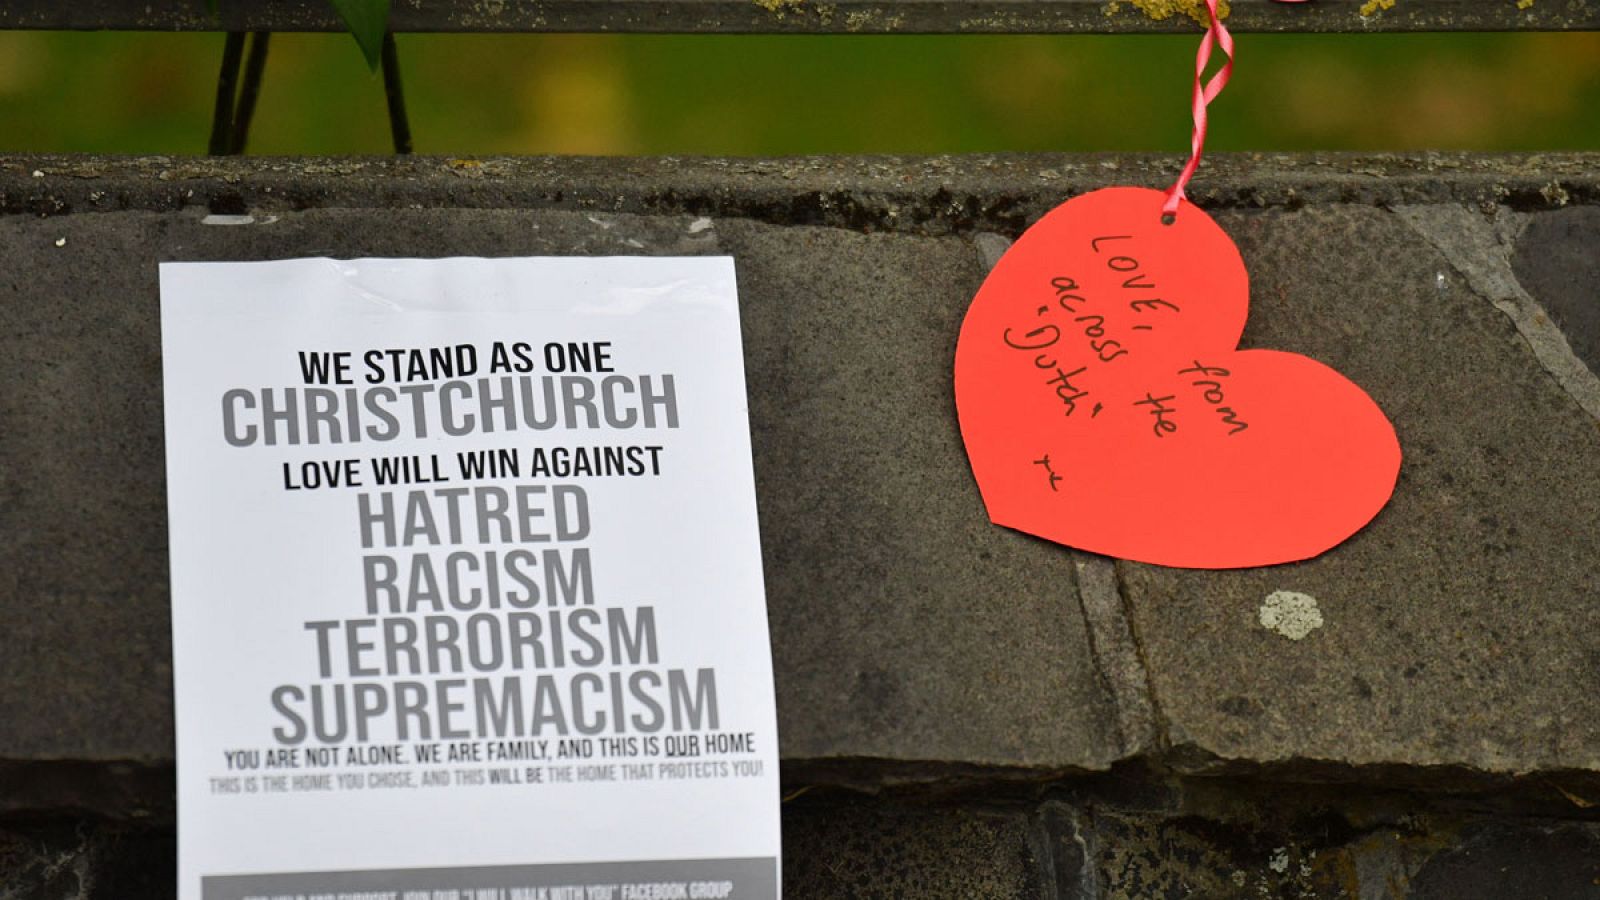 WE STAND AS ONE
CHRISTCHURCH
LOVE WILL WIN AGAINST
HATRED
RACISM
TERRORISM
SUPREMACISM
YOU ARE NOT ALONE. WE ARE FAMILY, AND THIS IS OUR HOME
THIS IS THE HOME YOU CHOSE, AND THIS WILL BE THE HOME THAT PROTECTS YOU!
FOR HELP AND SUPPORT, JOIN OUR "I WILL WALK WITH YOU" FACEBOOK GROUP
LOVE, from
across the
"Dutch"
xx